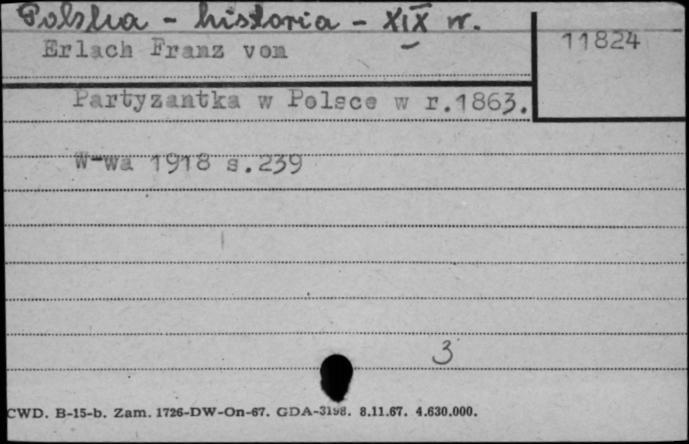 Polska - historia - XIX w.
Erlach Franz von
11824
Partyzantka w Polsce w r.1863.
W-wa 1918 s.239
3
CWD. B-15-b. Zam. 1726-DW-On-67. GDA-3198. 8.11.67. 4.630.000.